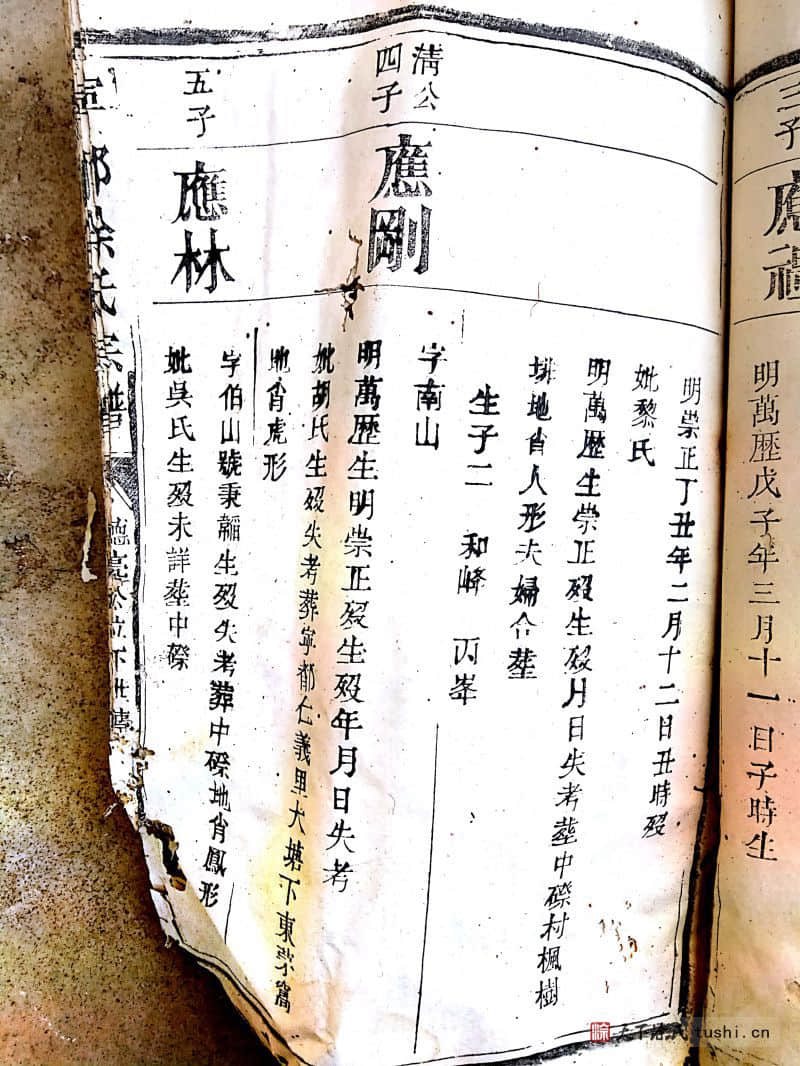 三子
應禮
明萬歷戊子年三月十一日子時生
明崇正丁丑年二月十二日丑時殁
妣黎氏
明萬歷生崇正殁生殁月日失考塟中磜村楓樹
排地肖人形夫婦合塟
生子二 和峰 丙峯
清公
四子
應剛
字南山
明萬歷生明崇正殁生殁年月日失考
妣胡氏生殁失考葬寧都仁義里大塘下東菜窩
地肖虎形
五子
應林
字伯山號秉韜生殁失考葬中磜地肖鳳形
妣吳氏生殁未詳塟中磜
寧都涂氏宗譜
位下世傳
tushi.cn